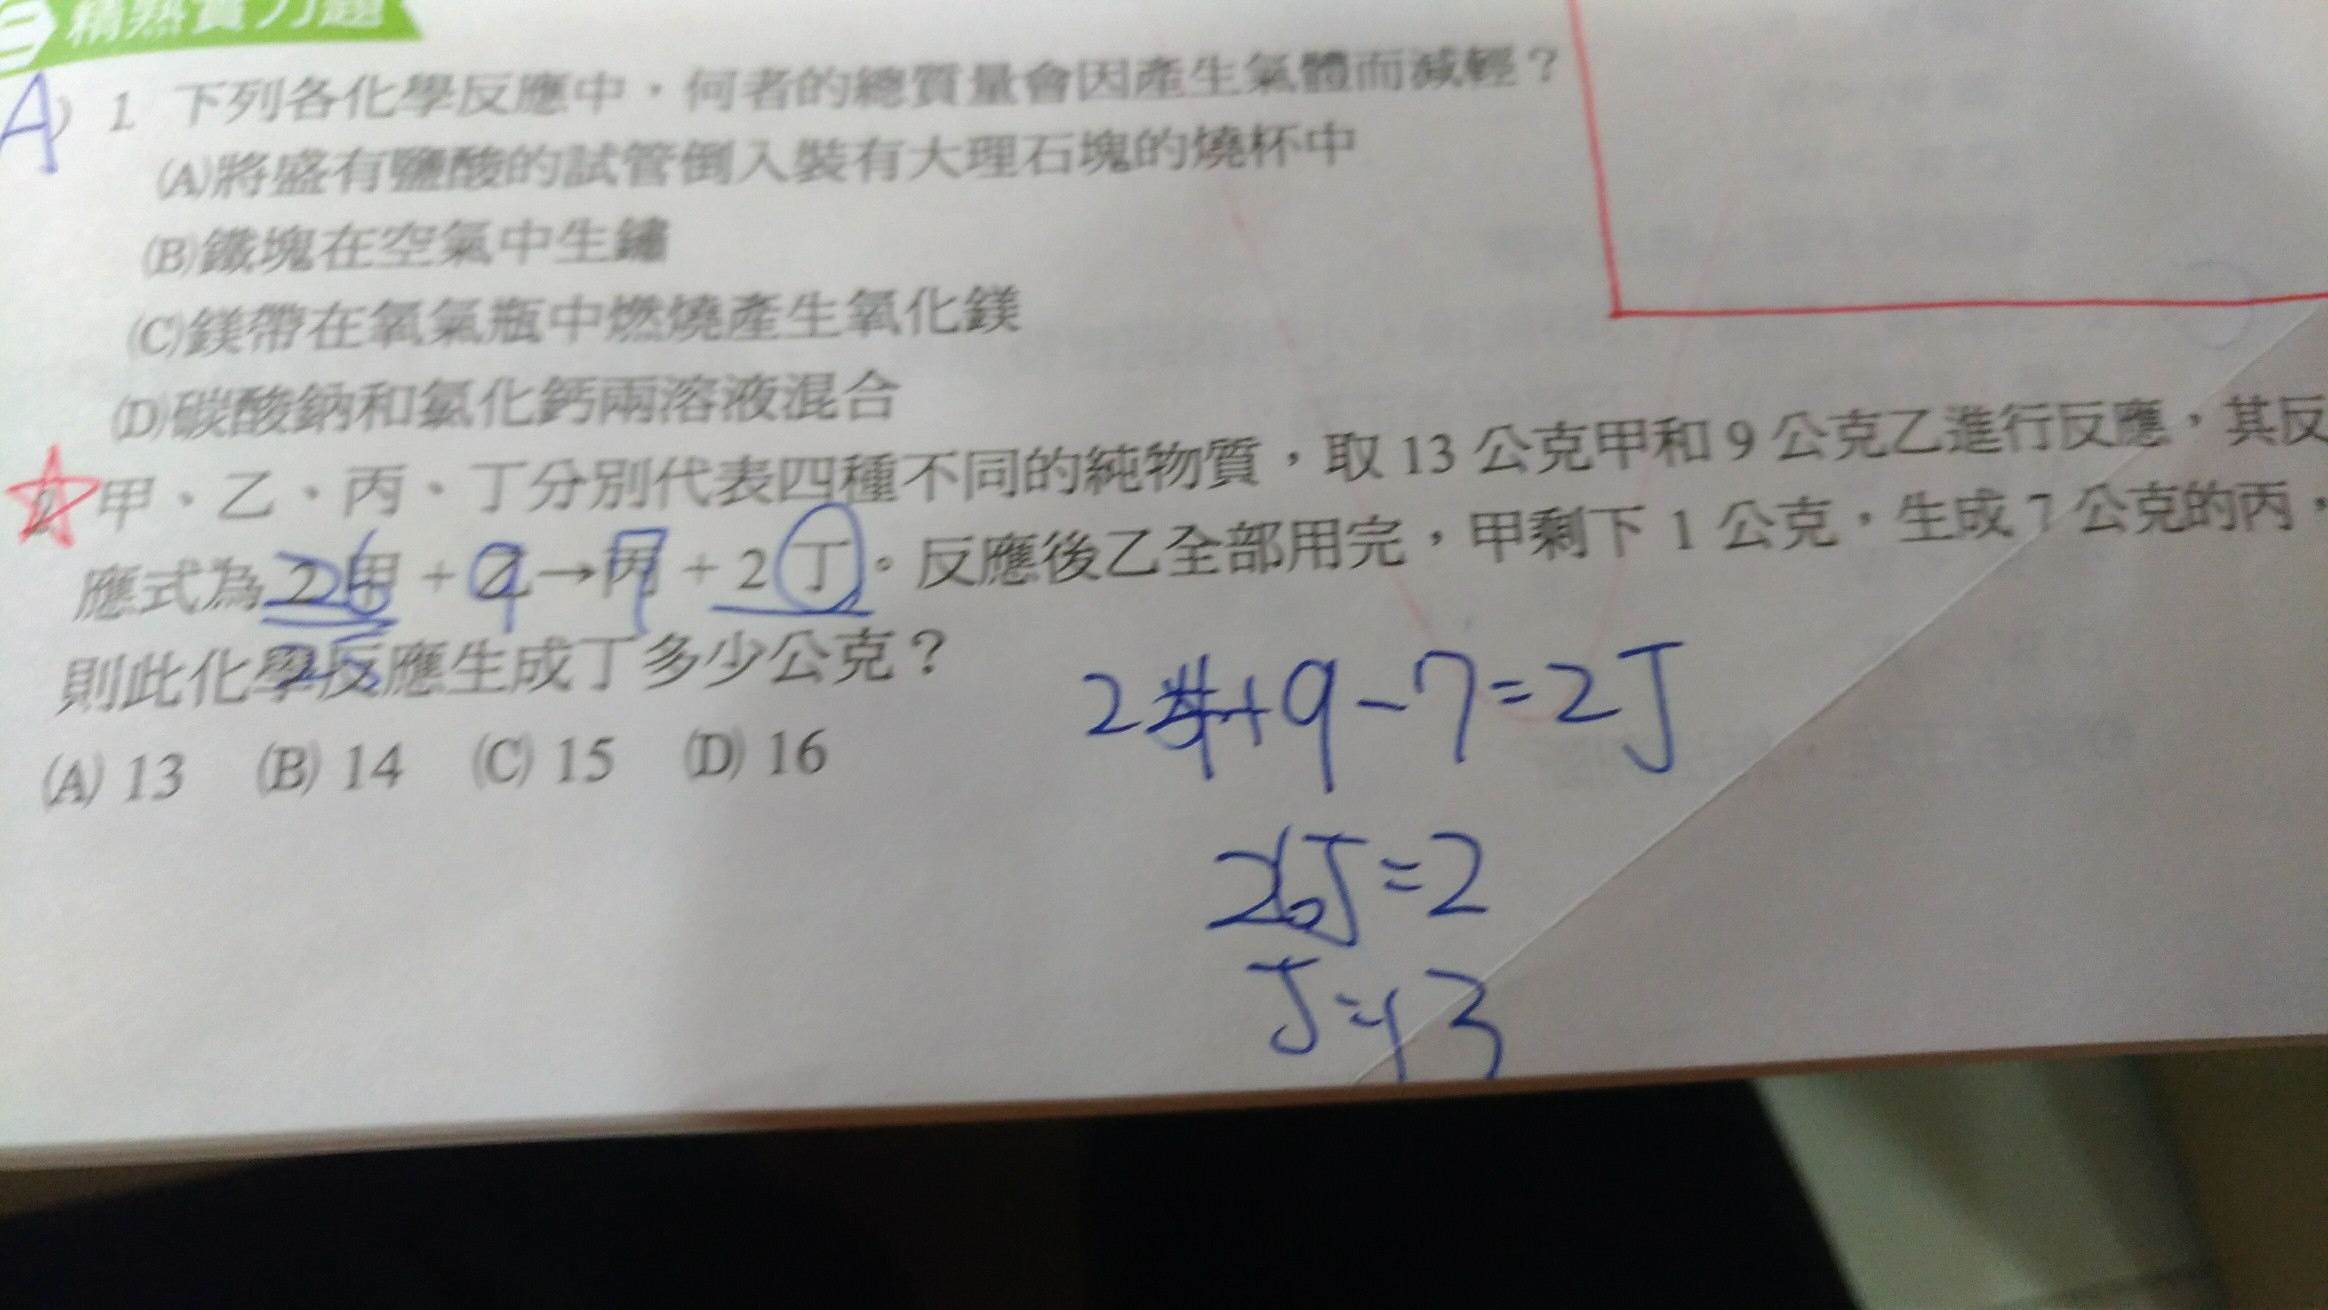 精熟實力題
A) 1 下列各化學反應中，何者的總質量會因產生氣體而減輕？
(A)將盛有鹽酸的試管倒入裝有大理石塊的燒杯中
(B)鐵塊在空氣中生鏽
(C)鎂帶在氧氣瓶中燃燒產生氧化鎂
(D)碳酸鈉和氯化鈣兩溶液混合
2 甲、乙、丙、丁分別代表四種不同的純物質，取 13 公克甲和 9 公克乙進行反應，其反
應式為 2 甲 + 乙 → 丙 + 2 丁。反應後乙全部用完，甲剩下 1 公克，生成 7 公克的丙，
26 9 7
則此化學反應生成丁多少公克？
25
(A) 13 (B) 14 (C) 15 (D) 16
+9-7=2丁
26丁=2
丁=13